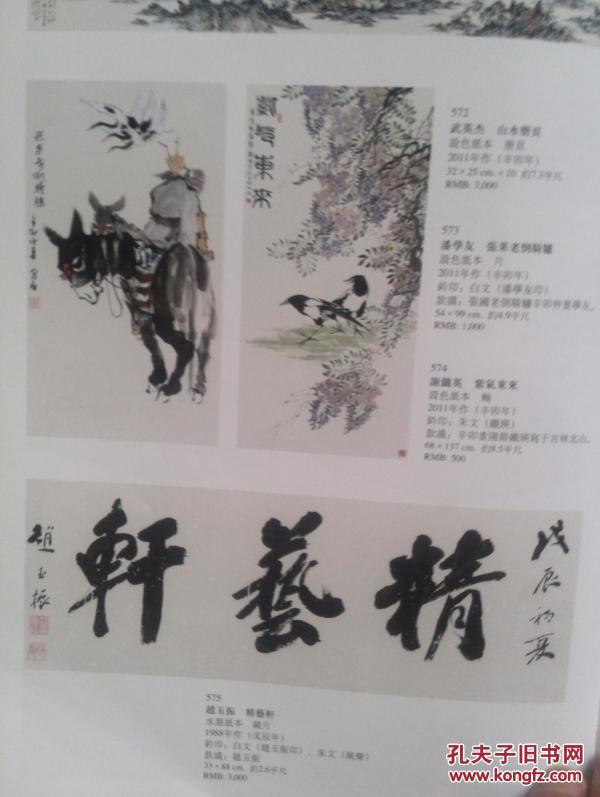 紫氣東來
572
武英杰　山水冊頁
設色紙本　冊頁
2011年作（辛卯年）
32×25 cm.×10　約7.3平尺
RMB: 3,000
573
潘學友　張果老倒騎驢
設色紙本　片
2011年作（辛卯年）
鈐印：白文（潘學友印）
款識：張國老倒騎驢辛卯仲夏學友。
54×99 cm.　約4.9平尺
RMB: 1,000
574
謝鐵英　紫氣東來
設色紙本　軸
2011年作（辛卯年）
鈐印：朱文（鐵瑛）
款識：辛卯重陽節鐵瑛寫于吉林北山。
68×137 cm.　約8.5平尺
RMB: 500
戊辰初夏
精藝軒
趙玉振
575
趙玉振　精藝軒
水墨紙本　鏡片
1988年作（戊辰年）
鈐印：白文（趙玉振印）、朱文（佩聲）
款識：趙玉振
33×88 cm.　約2.6平尺
RMB: 3,000
孔夫子旧书网
www.kongfz.com